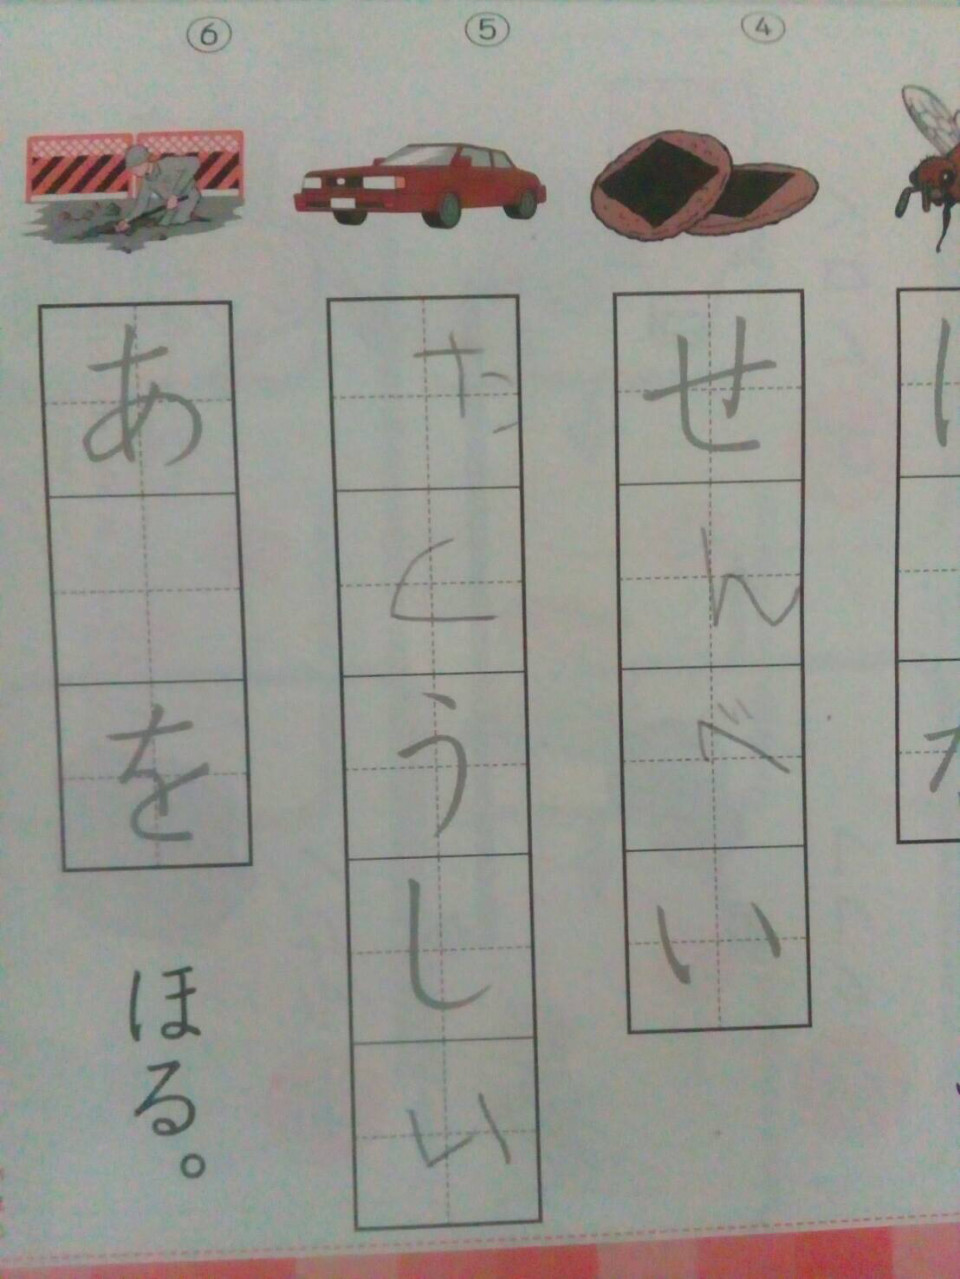 ④
せんべい
⑤
たくうしい
⑥
あ を ほる。